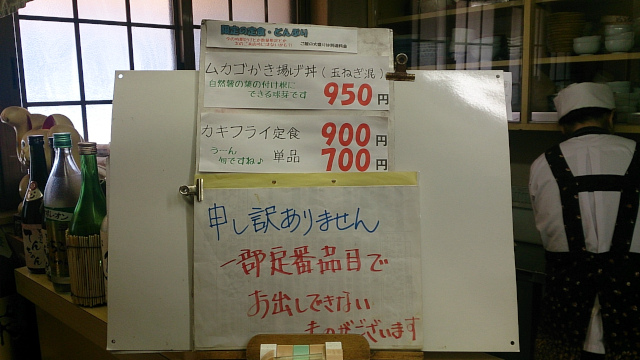 限定の定食・どんぶり
ご飯の大盛りは別途料金
ムカゴかき揚げ丼(玉ねぎ混)
自然薯の葉の付け根に
できる球芽です
950円
カキフライ定食 900円
うーん
旬ですね♪
単品 700円
申し訳ありません
一部定番品目で
お出しできない
ものがございます